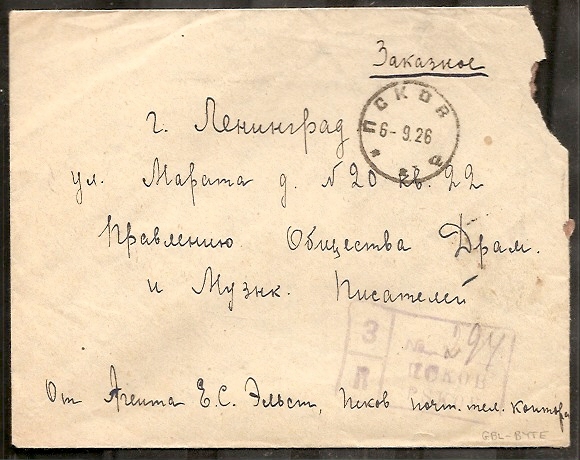 Заказное
ПСКОВ
6-9.26
г. Ленинград
ул. Марата д. №20 кв. 22
Правлению Общества Драм.
и Музык. Писателей
З
R
№ 294
ПСКОВ
От Агента Е.С. Эльст, Псков почт. тел. контора
GBL-BYTE